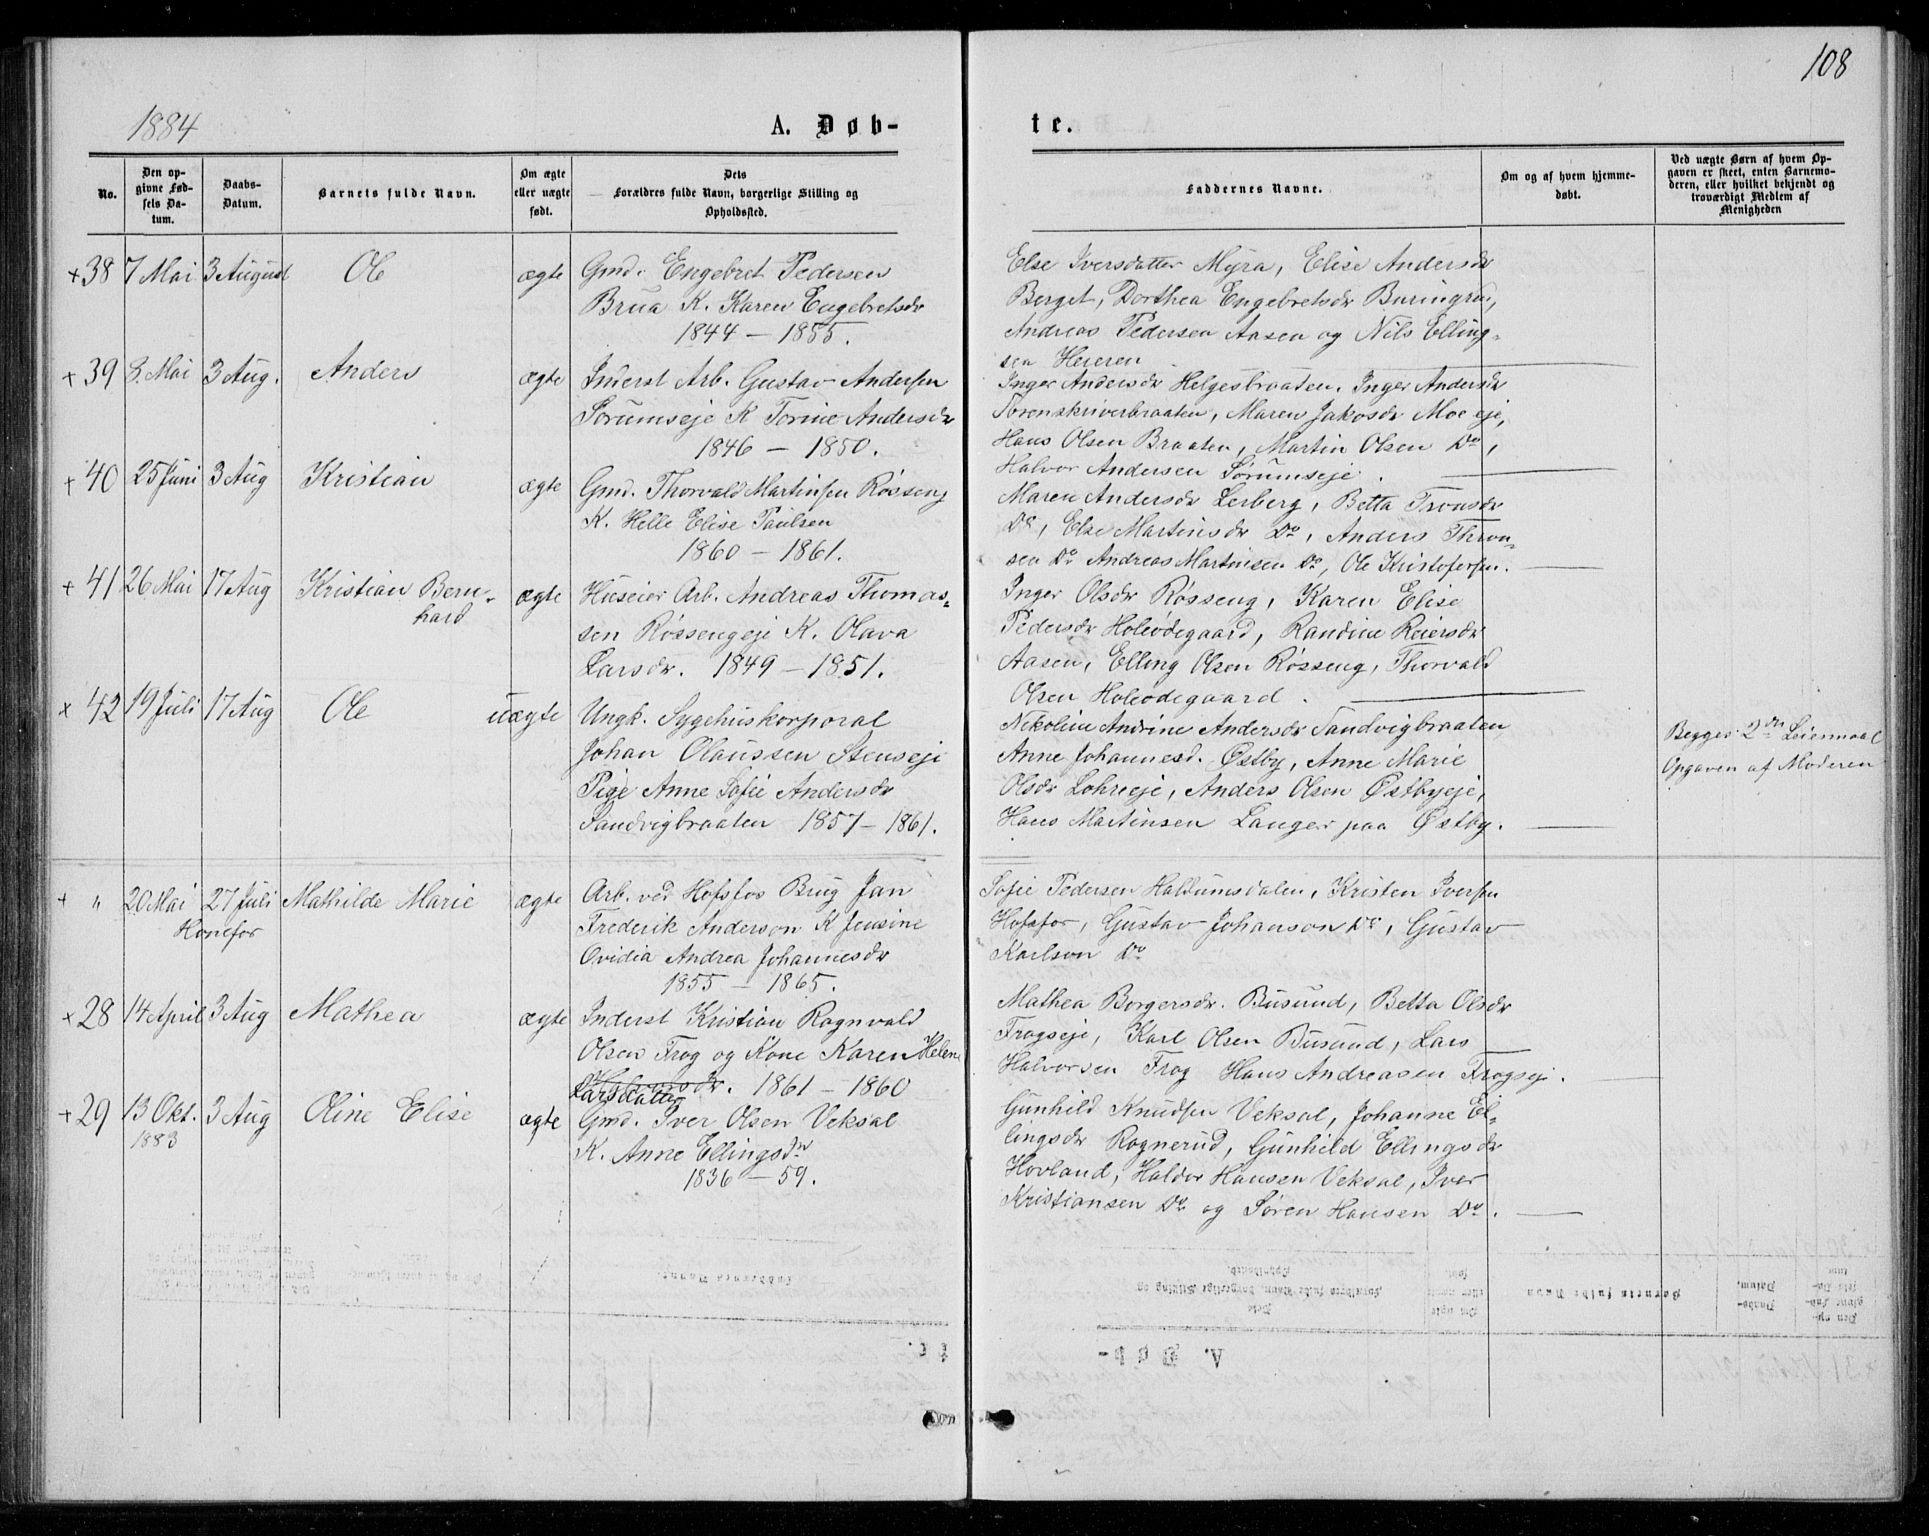 108
1884
A. Døb-
te.
No.
Den op-
givne Fød-
sels Da-
tum.
Daabs-
Datum.
Barnets fulde Navn.
Om ægte
eller uægte
født.
Dets
Forældres fulde Navn, borgerlige Stilling og
Opholdssted.
Faddernes Navne.
Om og af hvem hjemme-
døbt.
Ved uægte Børn af hvem Op-
gaven er skeet, enten Barnemo-
deren, eller hvilket bekjendt og
troværdigt Medlem af
Menigheden
+38 7 Mai 3 August Ole ægte Gmd. Engebret Pedersen
Brua K. Karen Engebretsdr
1844 – 1855.
Else Iversdatter Myra, Elise Andersdr
Berget, Dorthea Engebretsdr Buringrud,
Andreas Pedersen Aasen og Nils Elling-
sen Heieren
+39 8. Mai 3 Aug. Anders ægte Inderst Arb. Gustav Andersen
Sørumseje K Torine Andersdr
1846 – 1850.
Inger Andersdr Helgesbraaten, Inger Andersdr
Sorenskriverbraaten, Maren Jakosdr Moe eje,
Hans Olsen Braaten, Martin Olsen Do,
Halvor Andersen Sørumseje.
+40 25 Juni 3 Aug Kristian ægte Gmd. Thorvald Martinsen Røsseng
K. Helle Elise Paulsen
1860 – 1861.
Maren Andersdr Lerberg, Betta Tronsdr
Do, Else Martinsdr Do, Anders Thron-
sen Do Andreas Martinsen Do, Ole Kristofersen.
+41 26 Mai 17 Aug Kristian Bern-
hard
ægte Huseier Arb. Andreas Thomas-
sen Røssengeje K. Olava
Larsdr. 1849 – 1851.
Inger Olsdr Røsseng, Karen Elise
Pedersdr Holeødegaard, Randine Reiersdr
Aasen, Elling Olsen Røsseng, Thorvald
Olsen Holeødegaard.
x 42 19 Juli 17 Aug Ole uægte Ungk. Sygehuskorporal
Johan Olaussen Stenseje
Pige Anne Sofie Andersdr
Sandvigbraaten 1857 – 1861.
Nikoline Andrine Andersdr Sandvigbraaten
Anne Johannesd. Østby, Anne Marie
Olsdr Lohreje, Anders Olsen Østbyeje,
Hans Martinsen Langer paa Østby.
Begges 2det Leiermaal
Opgaven af Moderen
+ " 20 Mai 27 Juli Mathilde Marie ægte
Hønefos
Arb. ved Hofsfos Brug Jan
Frederik Anderson K Jensine
Ovidia Andrea Johannesdr
1855 – 1865.
Sofie Pedersen Hallumsdalen, Kristen Iversen
Hofsfos, Gustav Johanson Do, Gustav
Karlson Do
+28 14 April 3 Aug Mathea ægte Inderst Kristian Ragnvald
Olsen Frog og Kone Karen Helene
Halvorsdr. 1861 – 1860
Larsdatter
Mathea Borgersdr. Busund, Betta Olsdr
Frogseje, Karl Olsen Busund, Lars
Halvorsen Frog Hans Andreasen Frogseje.
+29 13 Okt. 3 Aug Oline Elise ægte Gmd. Iver Olsen Veksal
1883
K. Anne Ellingsdr
1836 – 59.
Gunhild Knudsen Veksal, Johanne El-
lingsdr Rognerud, Gunhild Ellingsdr
Hovland, Haldor Hansen Veksal, Iver
Kristiansen Do og Søren Hansen Do.